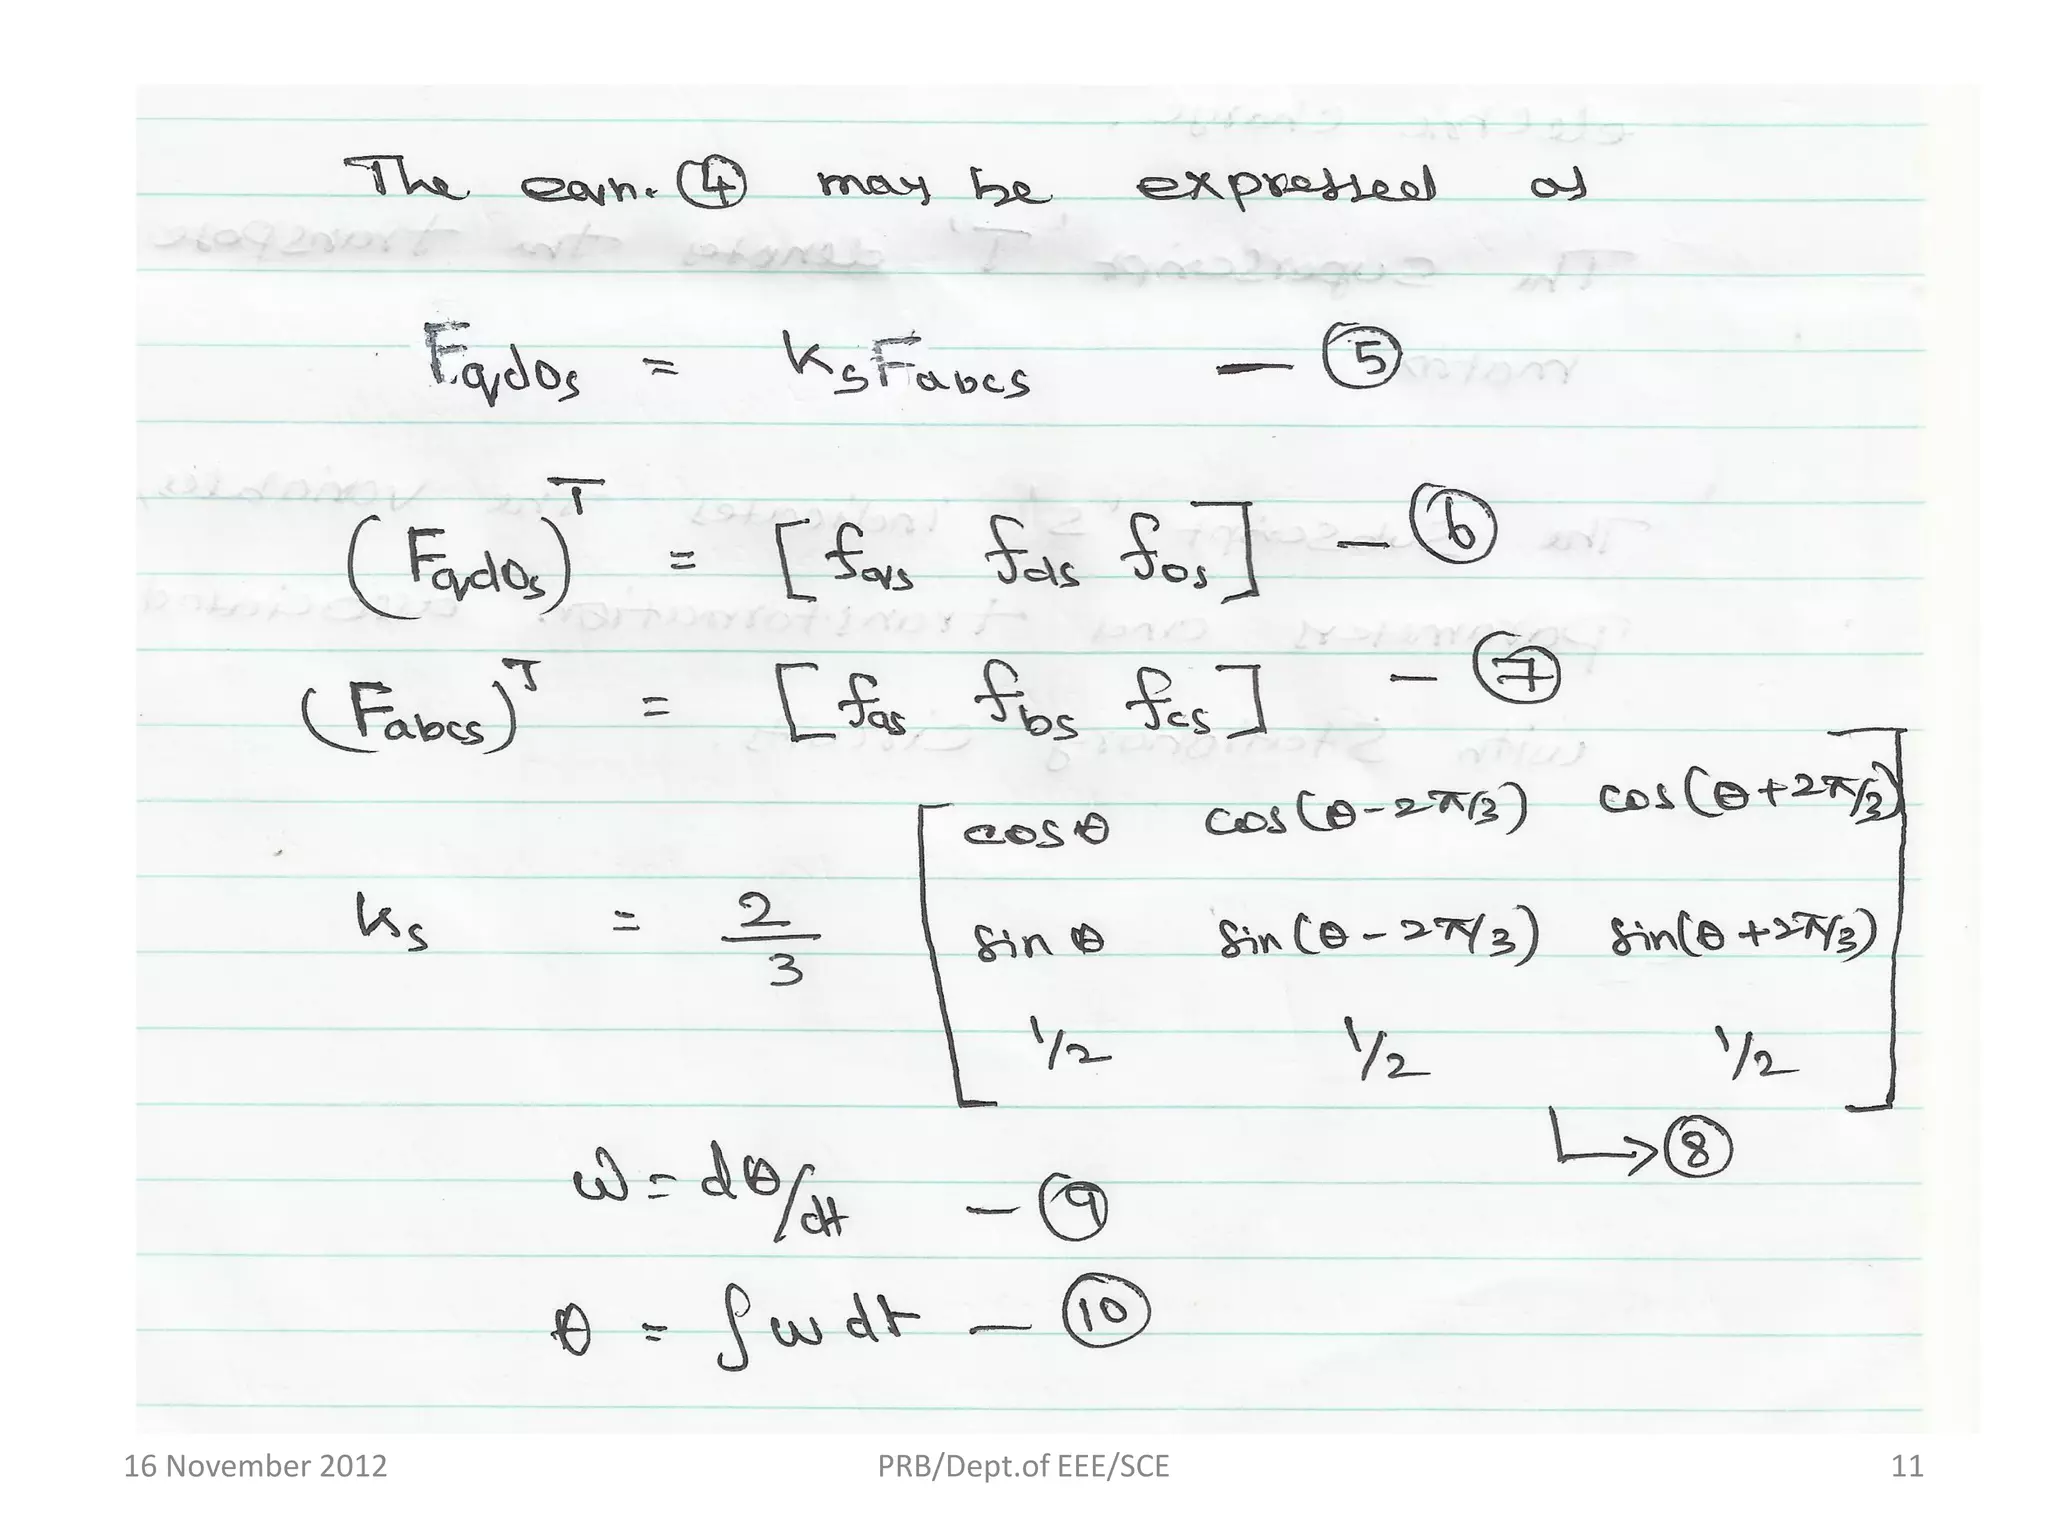 The eqn. ④ may be expressed as
Fqd0s = KsFabcs — ⑤
(Fqd0s)ᵀ = [fqs fds f0s] — ⑥
(Fabcs)ᵀ = [fas fbs fcs] — ⑦
cosθ cos(θ-2π/3) cos(θ+2π/3)
Ks = 2/3 sinθ sin(θ-2π/3) sin(θ+2π/3)
1/2 1/2 1/2
↳ ⑧
ω = dθ/dt — ⑨
θ = ∫ω dt — ⑩
16 November 2012 PRB/Dept.of EEE/SCE 11